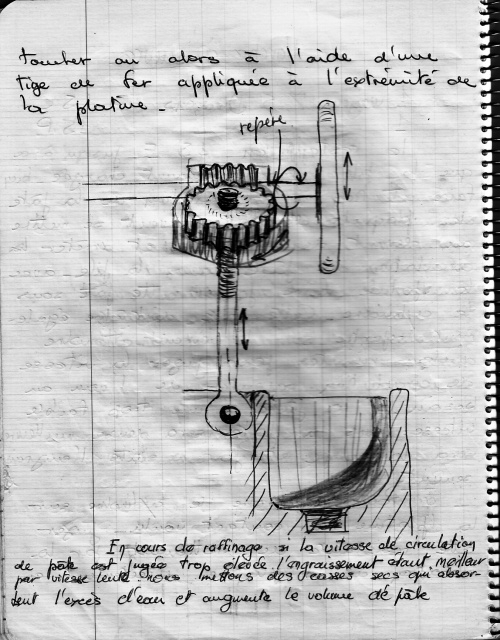 toucher ou alors à l'aide d'une
tige de fer appliquée à l'extrémité de
la platine.
repère
En cours de raffinage si la vitesse de circulation
de pâte est jugée trop élevée l'engraissement étant meilleur
par vitesse lente nous mettons des cassés secs qui absor-
bent l'excès d'eau et augmente le volume de pâte